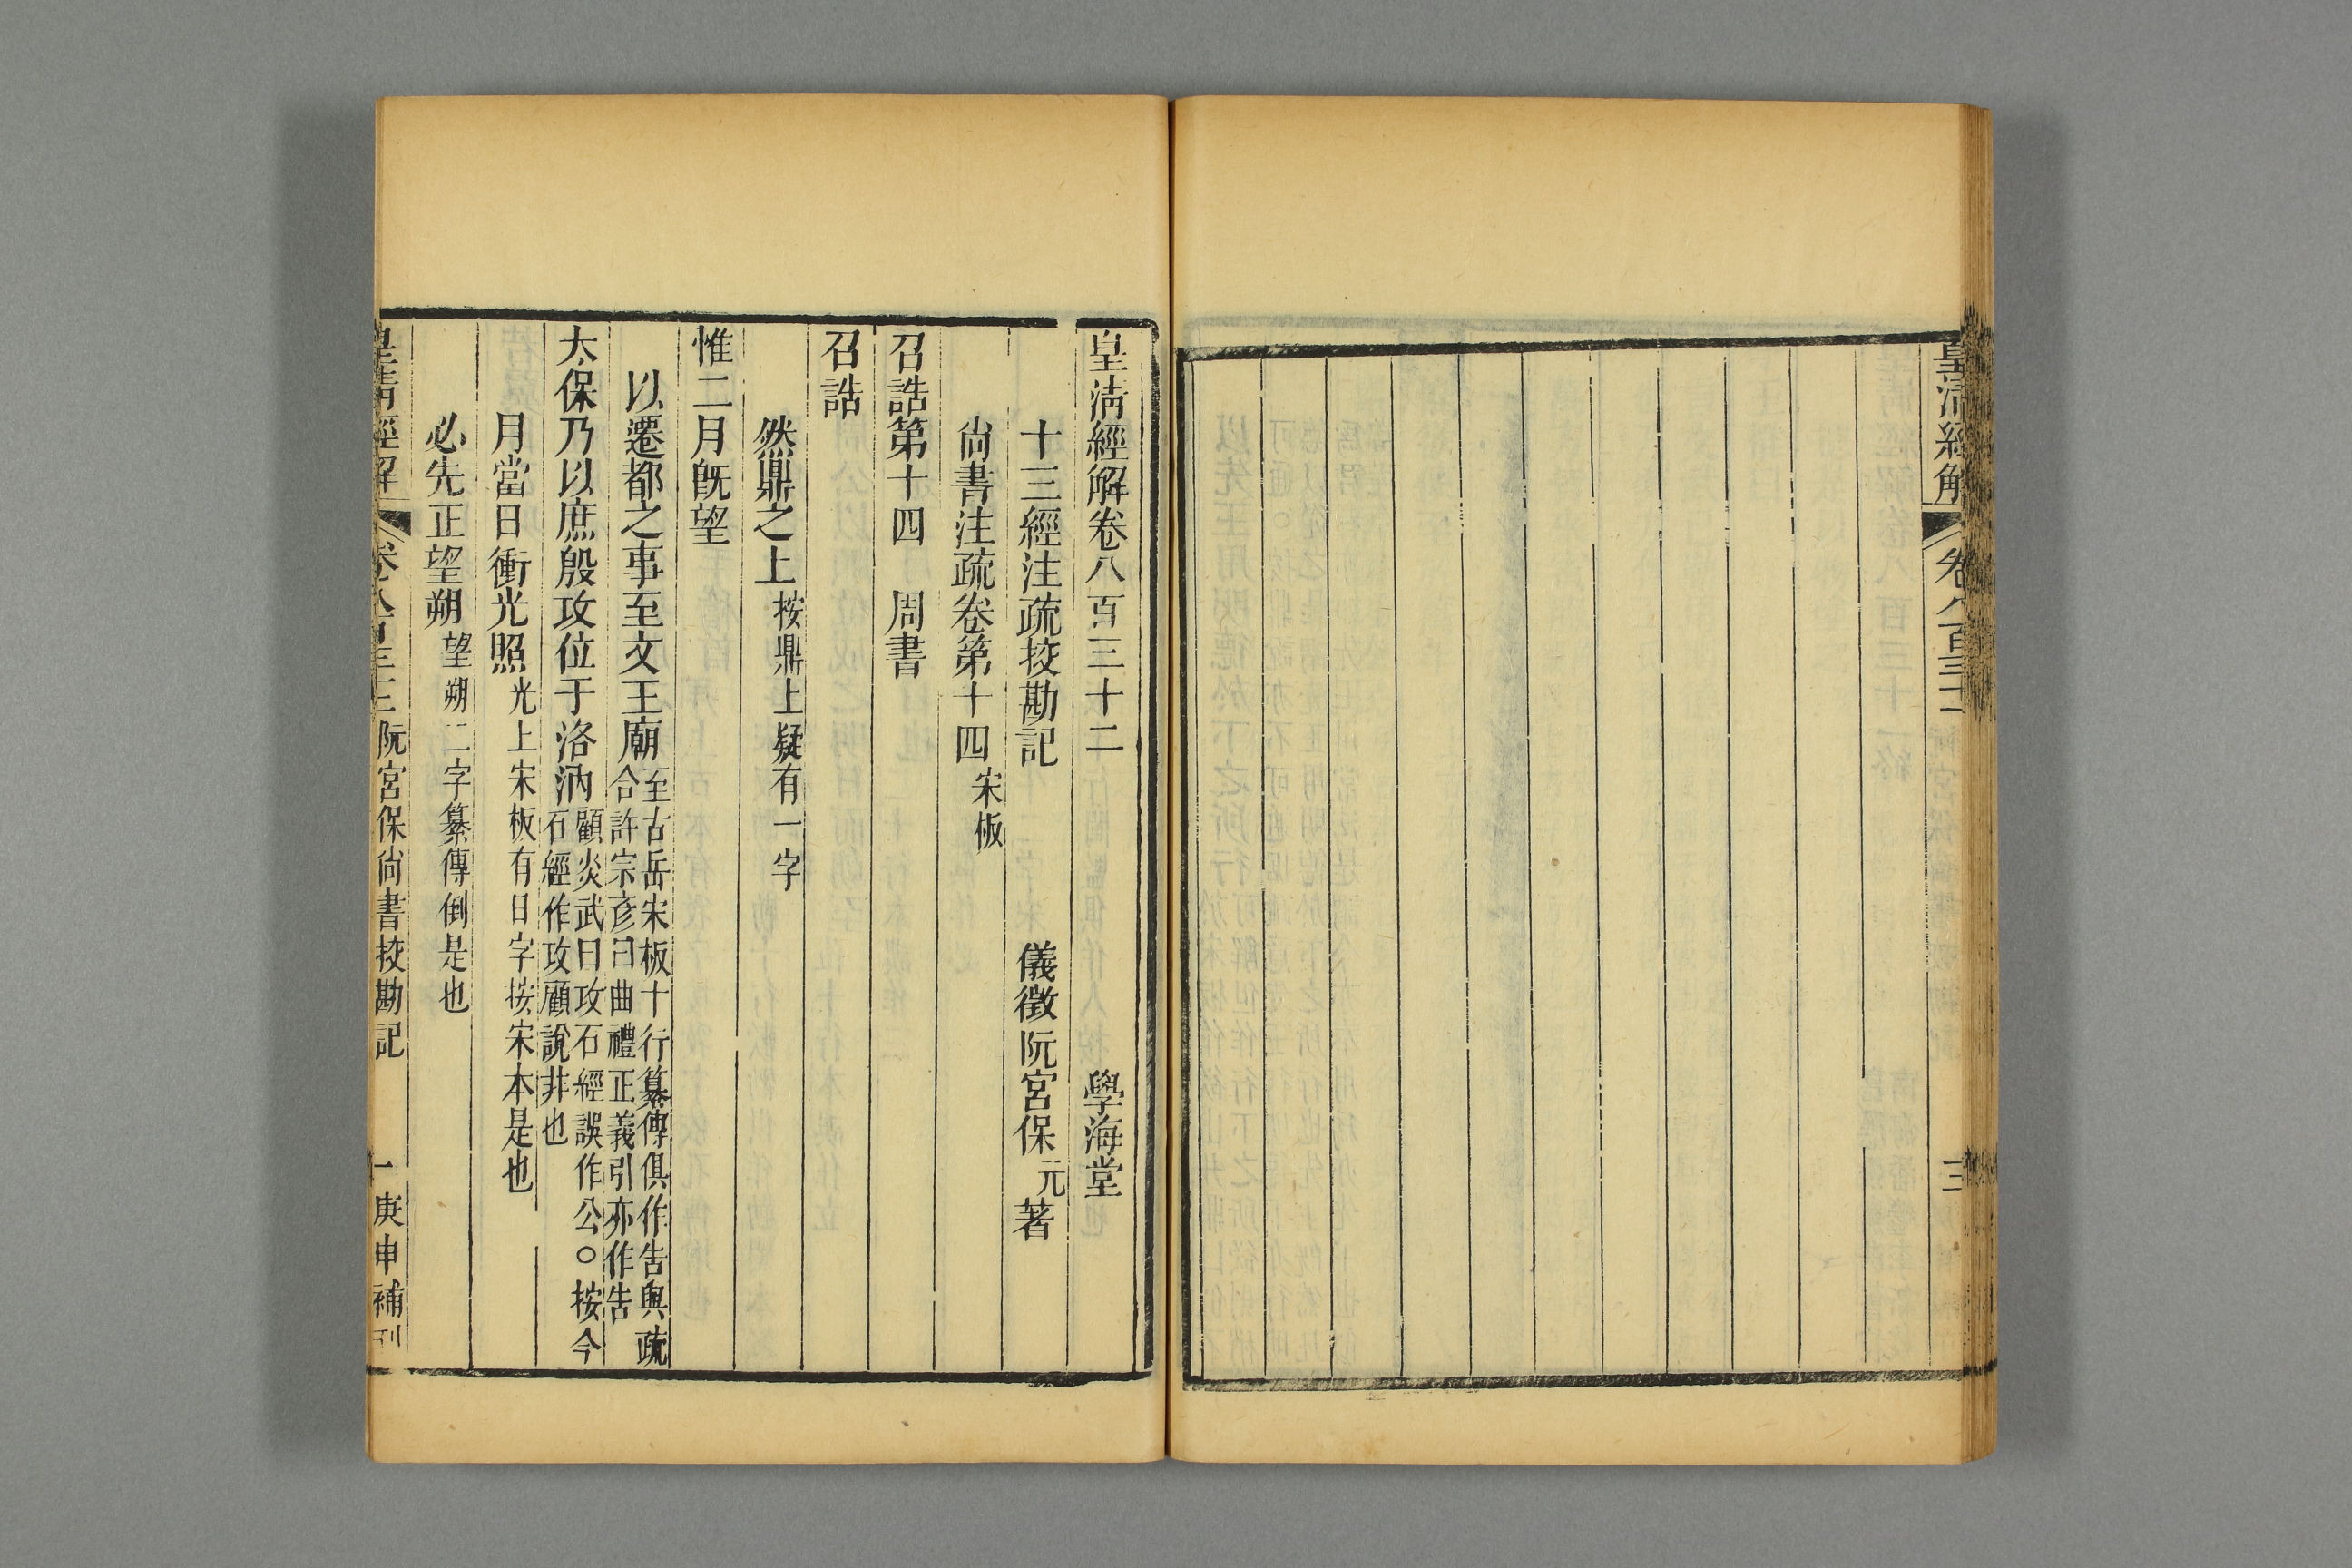 皇清經解 卷八百三十一 三
皇清經解卷八百三十二 學海堂
十三經注疏挍勘記 儀徵阮宮保元著
尙書注疏卷第十四宋板
召誥第十四 周書
召誥
然鼎之上按鼎上疑有一字
惟二月旣望
以遷都之事至文王廟至古岳宋板十行纂傳俱作告與疏
合許宗彥曰曲禮正義引亦作告
太保乃以庶殷攻位于洛汭顧炎武曰攻石經誤作公○按今
石經作攻顧說非也
月當日衝光照光上宋板有日字按宋本是也
必先正望朔望朔二字纂傳倒是也
皇淸經解 卷八百三十二 阮宮保尙書挍勘記 一 庚申補刊